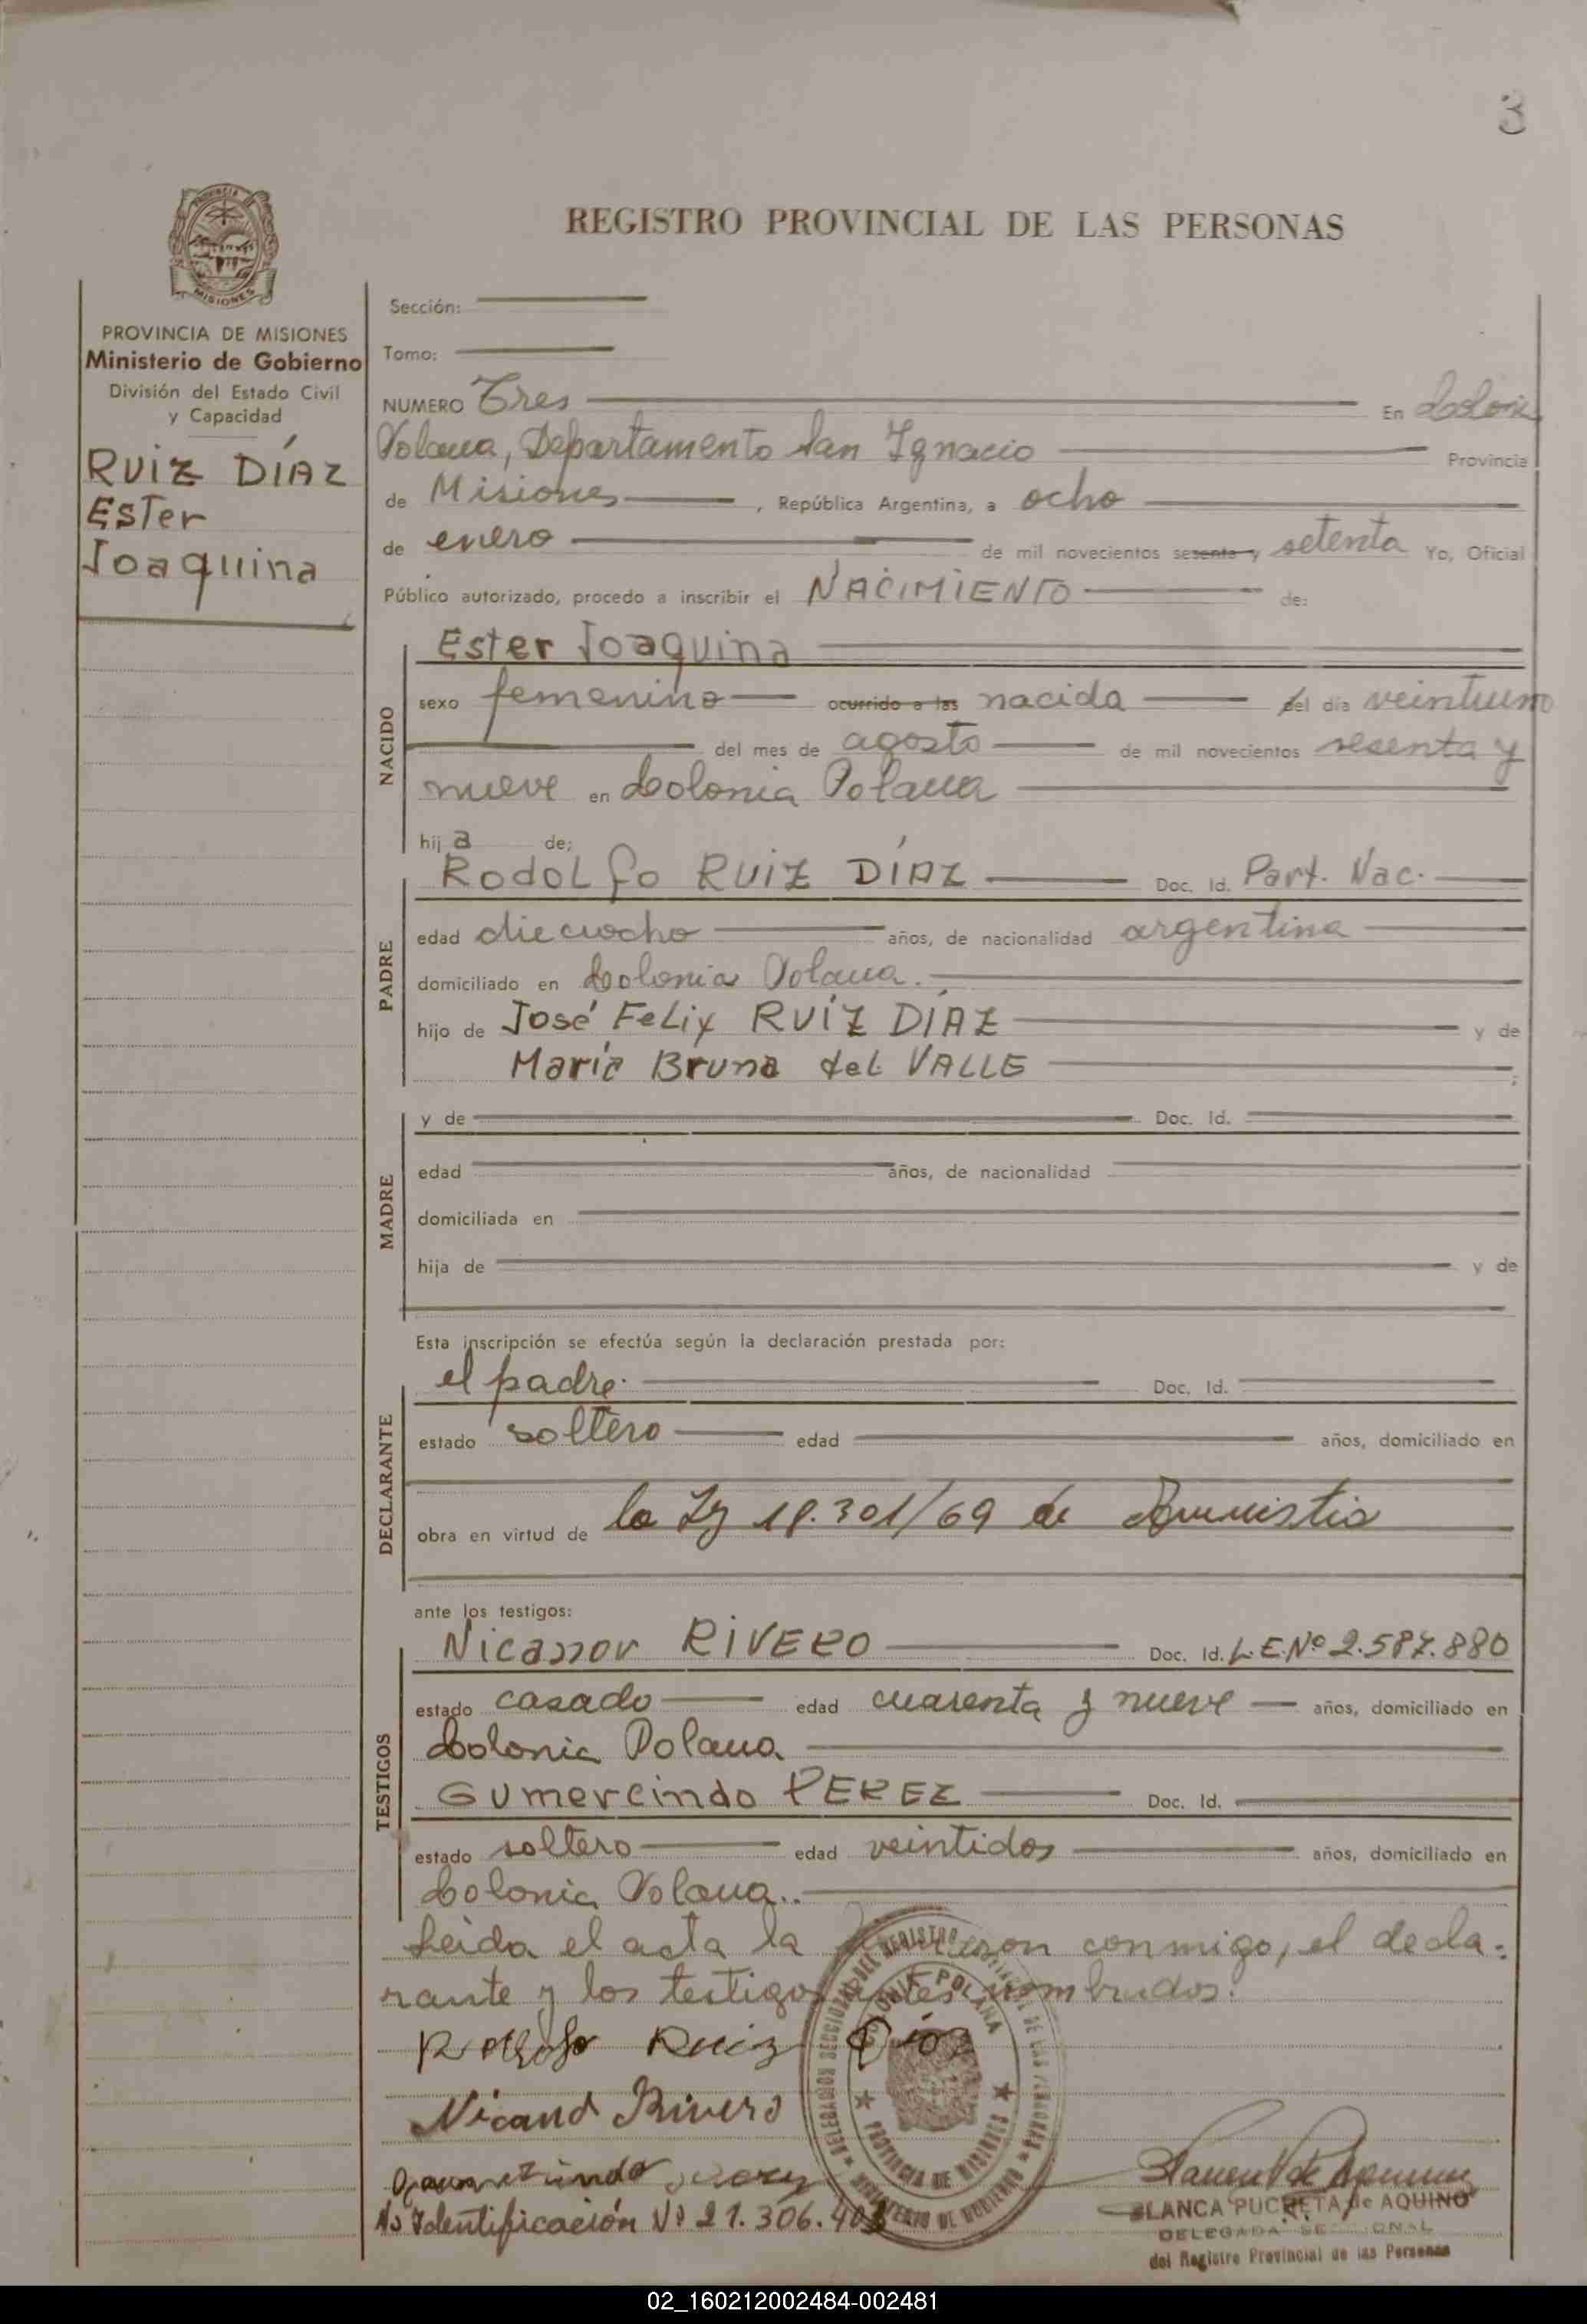 3
REGISTRO PROVINCIAL DE LAS PERSONAS
PROVINCIA
MISIONES
PROVINCIA DE MISIONES
Ministerio de Gobierno
División del Estado Civil
y Capacidad
RUIZ DÍAZ
Ester
Joaquina
Sección:
Tomo:
NUMERO Tres En Colonia
Polana, Departamento San Ignacio Provincia
de Misiones, República Argentina, a ocho
de enero de mil novecientos sesenta y setenta Yo, Oficial
Público autorizado, procedo a inscribir el NACIMIENTO de:
NACIDO
Ester Joaquina
sexo femenino ocurrido a las nacida del día veintiuno
del mes de agosto de mil novecientos sesenta y
nueve en Colonia Polana
hija de:
PADRE
Rodolfo RUIZ DÍAZ Doc. Id. Part. Nac.
edad dieciocho años, de nacionalidad argentina
domiciliado en Colonia Polana.
hijo de José Felix RUÍZ DÍAZ y de
María Bruna del VALLE ;
MADRE
y de Doc. Id.
edad años, de nacionalidad
domiciliada en
hija de y de
Esta inscripción se efectúa según la declaración prestada por:
DECLARANTE
el padre. Doc. Id.
estado soltero edad años, domiciliado en
obra en virtud de la Ley 18.301/69 de Amnistia
ante los testigos:
TESTIGOS
Nicanor RIVERO Doc. Id. L.E.Nº 2.587.880
estado casado edad cuarenta y nueve años, domiciliado en
Colonia Polana
Gumercindo PEREZ Doc. Id.
estado soltero edad veintidos años, domiciliado en
Colonia Polana..
Leida el acta la firmaron conmigo, el decla-
rante y los testigos antes nombrados.
Rodolfo Ruiz Diaz
Nicanor Rivero
DELEGACION SECCIONAL DEL REGISTRO PROVINCIAL DE LAS PERSONAS
MINISTERIO DE GOBIERNO
COLONIA POLANA
PROVINCIA DE MISIONES
Identificación Nº 21.306.403
BLANCA PUCHETA de AQUINO
DELEGADA SECCIONAL
del Registro Provincial de las Personas
02_160212002484-002481